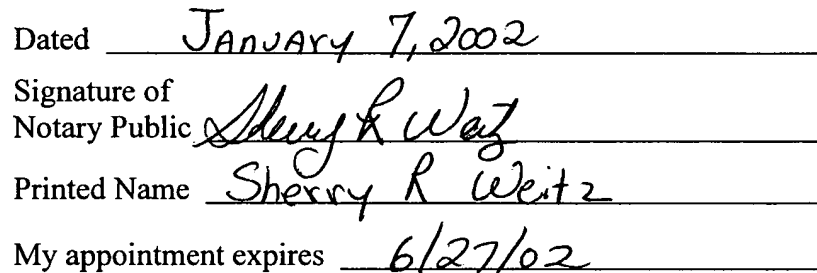 Dated January 7, 2002
Signature of
Notary Public Sherry R Weitz
Printed Name Sherry R Weitz
My appointment expires 6/27/02